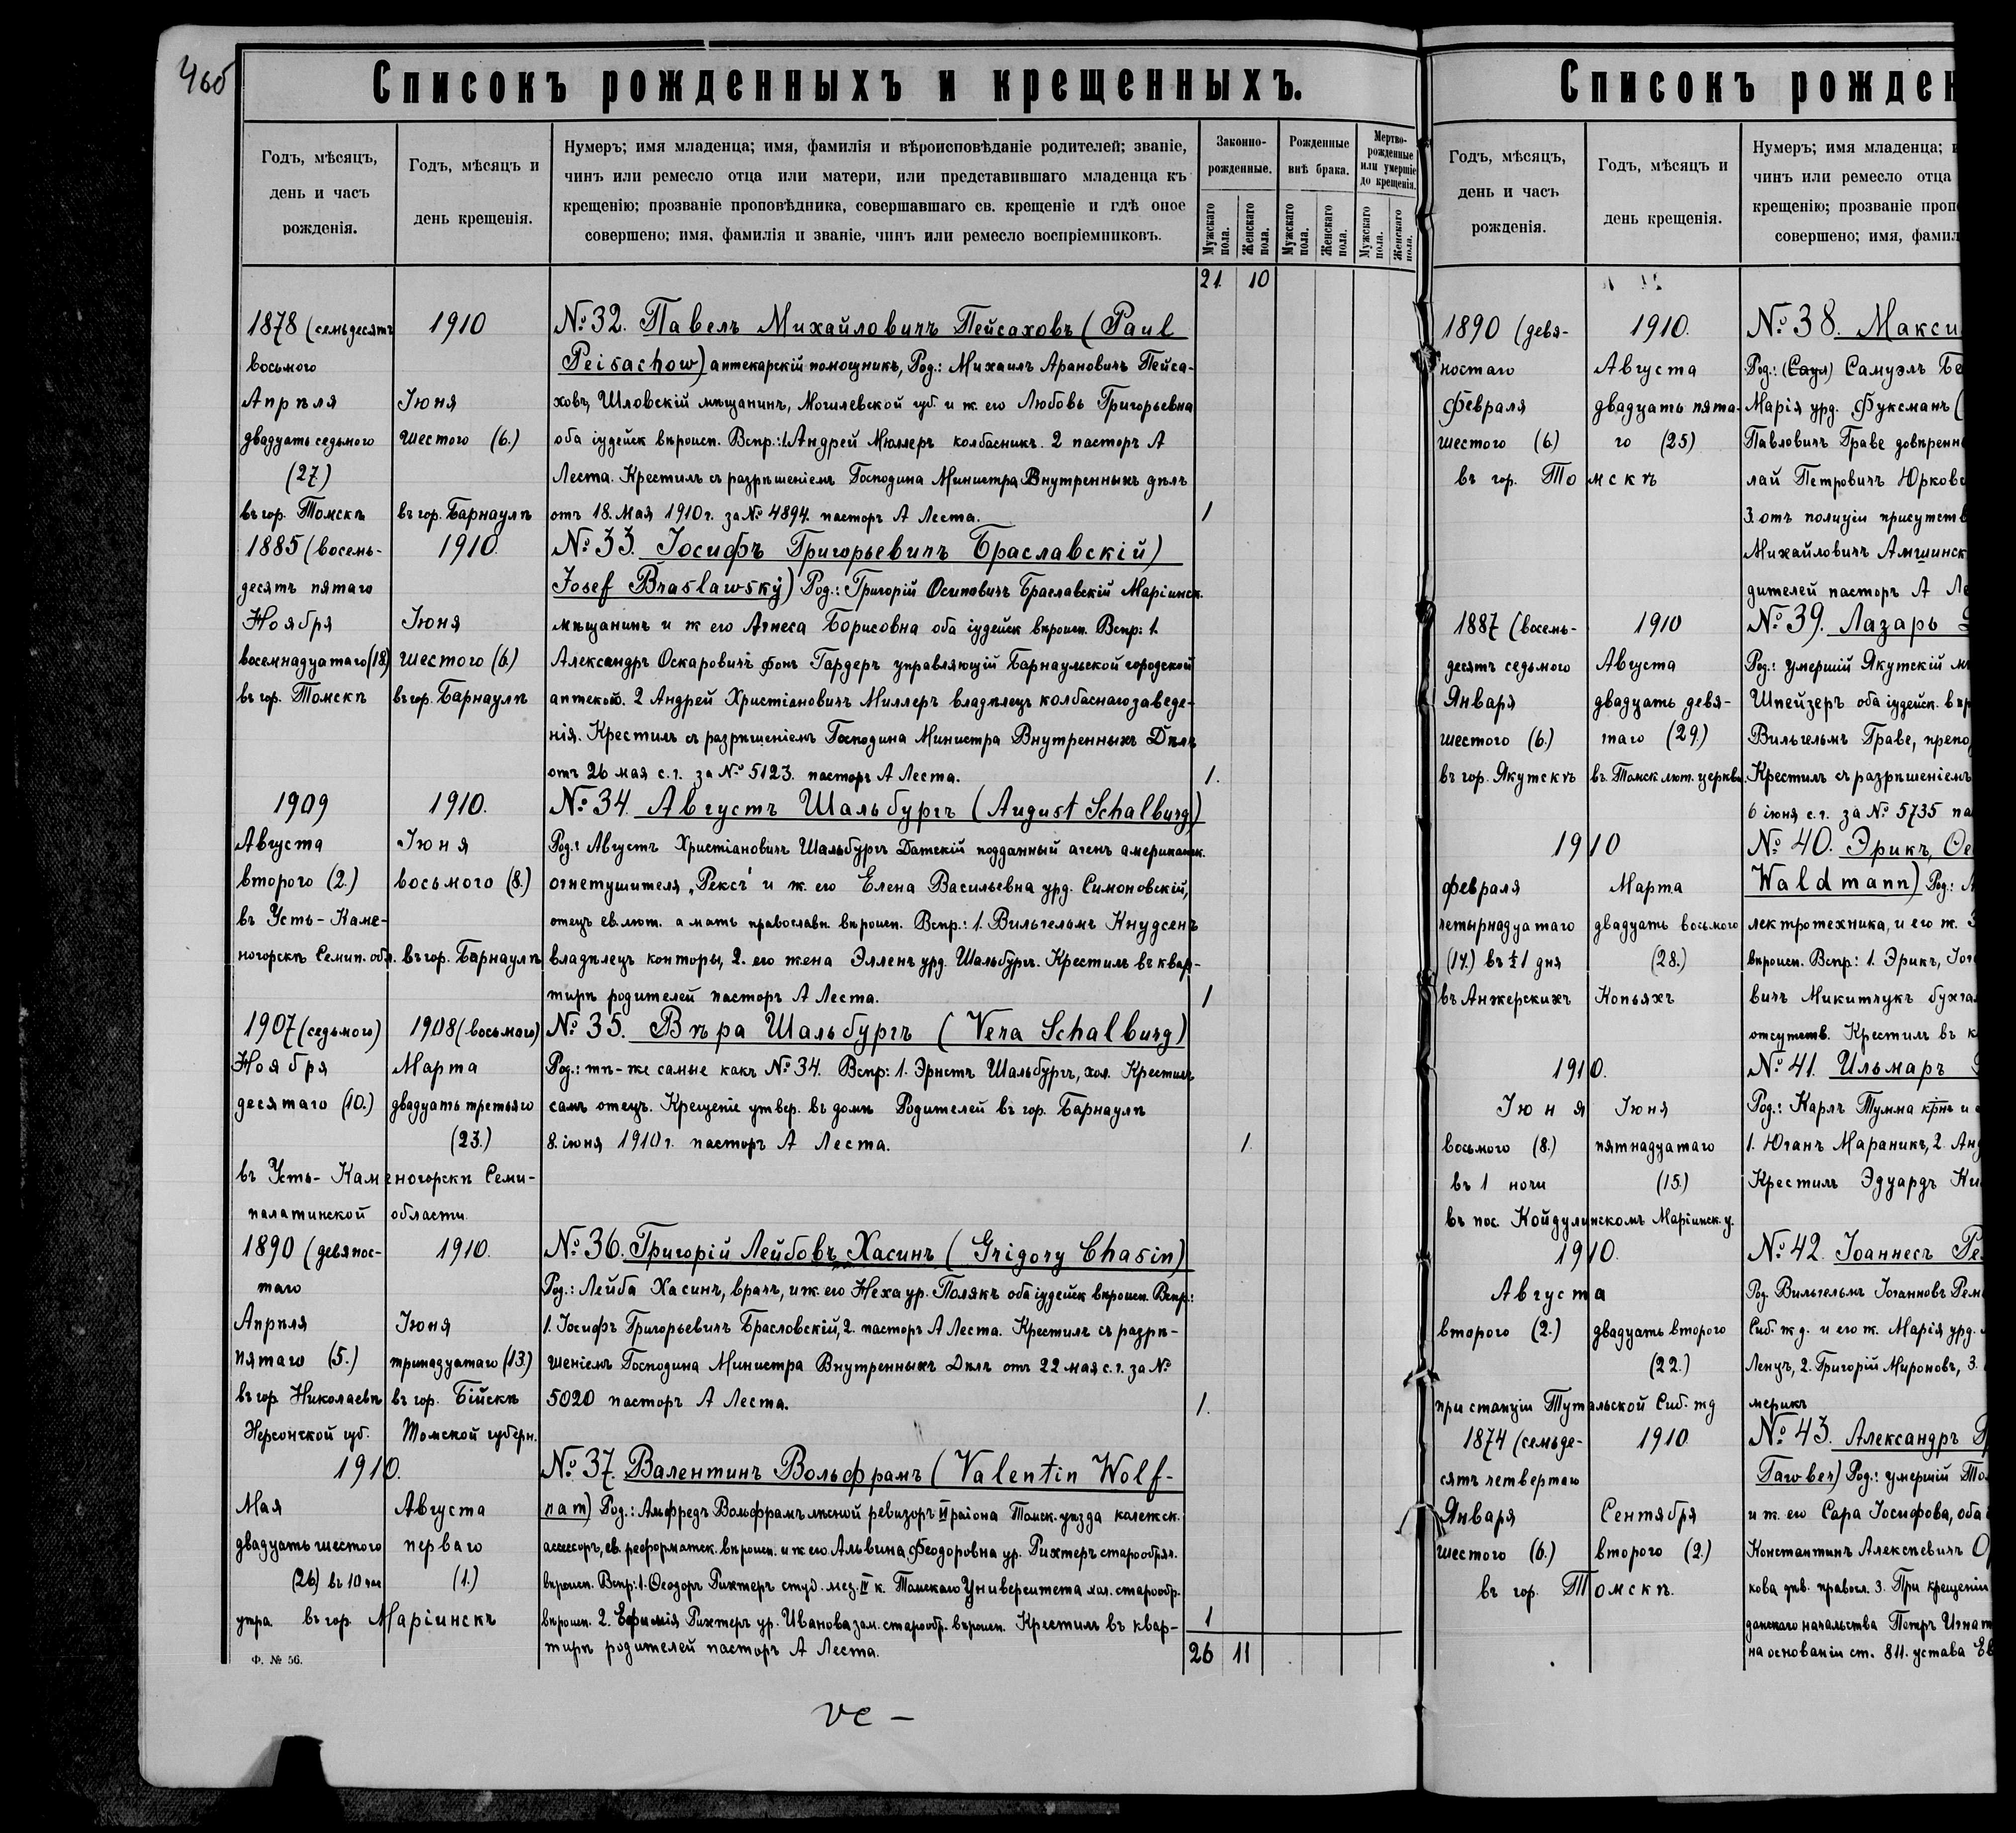 Списокъ рожденныхъ и крещенныхъ.
Годъ, мѣсяцъ, день и часъ рожденія.
Годъ, мѣсяцъ и день крещенія.
Нумеръ; имя младенца; имя, фамилія и вѣроисповѣданіе родителей; званіе,
чинъ или ремесло отца или матери, или представившаго младенца къ
крещенію; прозваніе проповѣдника, совершавшаго св. крещеніе и гдѣ оное
совершено; имя, фамилія и званіе, чинъ или ремесло воспріемниковъ.
Законно-рожденные.
Рожденные внѣ брака.
Мертво-рожденные или умершіе до крещенія.
Мужскаго пола. Женскаго пола. Мужскаго пола. Женскаго пола. Мужскаго пола. Женскаго пола.
21 10
1878 (семьдесятъ 1910 №32. Павелъ Михайловичъ Пейсаховъ (Paul
восьмого Peisachow) аптекарскій помощникъ, Род.: Михаилъ Арановичъ Пейса-
Апрѣля Іюня ховъ, Шловскій мѣщанинъ, Могилевской губ. и ж. его Любовь Григорьевна
двадцать седьмого шестого (6.) оба іудейск вѣроисп. Вспр.: 1. Андрей Мюллеръ колбасникъ. 2 пасторъ А
(27.) Леста. Крестилъ съ разрѣшеніемъ Господина Министра Внутренныхъ дѣлъ
въ гор. Томскѣ въ гор. Барнаулѣ отъ 18. Мая 1910 г. за № 4894. пасторъ А Леста. 1
1885 (восемь- 1910. № 33. Іосифъ Григорьевичъ Браславскій)
десятъ пятаго Josef Braslawsky) Род.: Григорій Осиповичъ Браславскій Маріинск.
Ноября Іюня мѣщанинъ и ж его Агнеса Борисовна оба іудейск вѣроисп. Вспр: 1.
восемнадцатаго (18) шестого (6.) Александръ Оскаровичъ фонъ Гардеръ управляющій Барнаульской городской
въ гор. Томскѣ въ гор. Барнаулѣ аптекой. 2 Андрей Христіановичъ Миллеръ владѣлецъ колбаснаго заведе-
нія. Крестилъ съ разрѣшеніемъ Господина Министра Внутренныхъ Дѣлъ
отъ 26 мая с. г. за № 5123. пасторъ А Леста. 1.
1909 1910. № 34. Августъ Шальбургъ (August Schalburg)
Августа Іюня Род.: Августъ Христіановичъ Шальбургъ Датскій подданный агенъ американск.
второго (2.) восьмого (8.) огнетушителя „Рексъ" и ж. его Елена Васильевна урд. Симоновскій,
въ Усть-Каме- отецъ ев. лют. а мать православн. вѣроисп. Вспр.: 1. Вильгельмъ Кнудсенъ
ногорскѣ Семип. обл. въ гор. Барнаулѣ владѣлецъ конторы, 2. его жена Элленъ урд. Шальбургъ. Крестилъ въ квар-
тирѣ родителей пасторъ А Леста. 1
1907 (седьмого) 1908 (восьмого) № 35. Вѣра Шальбургъ (Vera Schalburg)
Ноября Марта Род.: тѣ-же самые какъ № 34. Вспр: 1. Эрнстъ Шальбургъ, хол. Крестилъ
десятаго (10.) двадцать третьяго самъ отецъ. Крещеніе утвер. въ домѣ Родителей въ гор. Барнаулѣ
(23.) 8. іюня 1910 г. пасторъ А Леста. 1.
въ Усть-Каменогорскѣ Семи-
палатинской области.
1890 (девянос- 1910. № 36. Григорій Лейбовъ Хасинъ (Grigory Chasin)
таго Род.: Лейба Хасинъ, врачъ, и ж. его Неха ур. Полякъ оба іудейск вѣроисп. Вспр:
Апрѣля Іюня 1. Іосифъ Григорьевичъ Брасловскій, 2. пасторъ А Леста. Крестилъ съ разрѣ-
пятаго (5.) тринадцатаго (13.) шеніемъ Господина Министра Внутренныхъ Дѣлъ отъ 22 мая с. г. за №
въ гор. Николаевѣ въ гор. Бійскѣ 5020 пасторъ А Леста. 1.
Херсонской губ. Томской губерн.
1910. № 37. Валентинъ Вольфрамъ (Valentin Wolf-
Мая Августа ram) Род.: Альфредъ Вольфрамъ лѣсной ревизоръ VI раіона Томск. уѣзда колежск.
двадцать шестого перваго ассесоръ, ев. реформатск. вѣроисп. и ж его Альвина Феодоровна ур. Рихтеръ старообряч.
(26) въ 10 час (1.) вѣроисп. Вспр: 1. Ѳеодоръ Рихтеръ студ. мед. IV к. Томскаго Университета хол. старообр.
утра. въ гор. Маріинскѣ вѣроисп. 2. Ефимія Рихтеръ ур. Иванова зам. старообр. вѣроисп. Крестилъ въ квар- 1
тирѣ родителей пасторъ А Леста. 26 11
Ф. № 56.
Списокъ рожден
Годъ, мѣсяцъ, день и часъ рожденія.
Годъ, мѣсяцъ и день крещенія.
Нумеръ; имя младенца;
чинъ или ремесло отца
крещенію; прозваніе
совершено; имя,
1890 (девя- 1910. № 38.
ностаго Августа Род.: (Саул) Самуэлъ
Февраля двадцать пята- Марія урд. Фуксманъ (
шестого (6) го (25) Павловичъ Граве
въ гор. Томскѣ лай Петровичъ
3. отъ полиціи
Михайловичъ
дителей пасторъ А
1887 (восемь- 1910 № 39. Лазарь
десятъ седьмого Августа Род.: умершій Якутскій
Января двадцать девя- Шпейзеръ оба іудейск.
шестого (6.) таго (29.) Вильгельмъ Граве,
въ гор. Якутскѣ въ Томск лют. церкви. Крестилъ съ разрѣшеніемъ
6 іюня с. г. за № 5735
1910 № 40. Эрикъ,
Февраля Марта Waldmann) Род.:
четырнадцатаго двадцать восьмого лектротехника, и его ж.
(14.) въ ½1 дня (28.) вѣроисп. Вспр: 1. Эрикъ,
въ Анжерскихъ Копьяхъ вичъ Микитчукъ
отсутств. Крестилъ въ
1910. № 41. Ильмаръ
Іюня Іюня Род.: Карлъ Тумма крнъ и
восьмого (8.) пятнадцатаго 1. Юганъ Мараникъ, 2.
въ 1 ночи (15.) Крестилъ Эдуардъ
въ пос. Койдулинскомъ Маріинск. у.
1910. № 42. Іоаннесъ
Августа Род. Вильгельмъ Іоганновъ
второго (2.) двадцать второго Сиб. ж д. и его ж. Марія урд.
(22.) Ленцъ, 2. Григорій Мироновъ, 3.
при станціи Тутальской Сиб. жд мерикъ
1874 (семьде- 1910 № 43. Александръ
сятъ четвертаго Род.: умершій
Января Сентября и ж. его Сара Іосифова, оба
шестого (6.) второго (2.) Константинъ Алексѣевичъ
въ гор. Томскѣ. кова дѣв. правосл. 3. При крещеніи
данскаго начальства Петръ
на основаніи ст. 811. устава